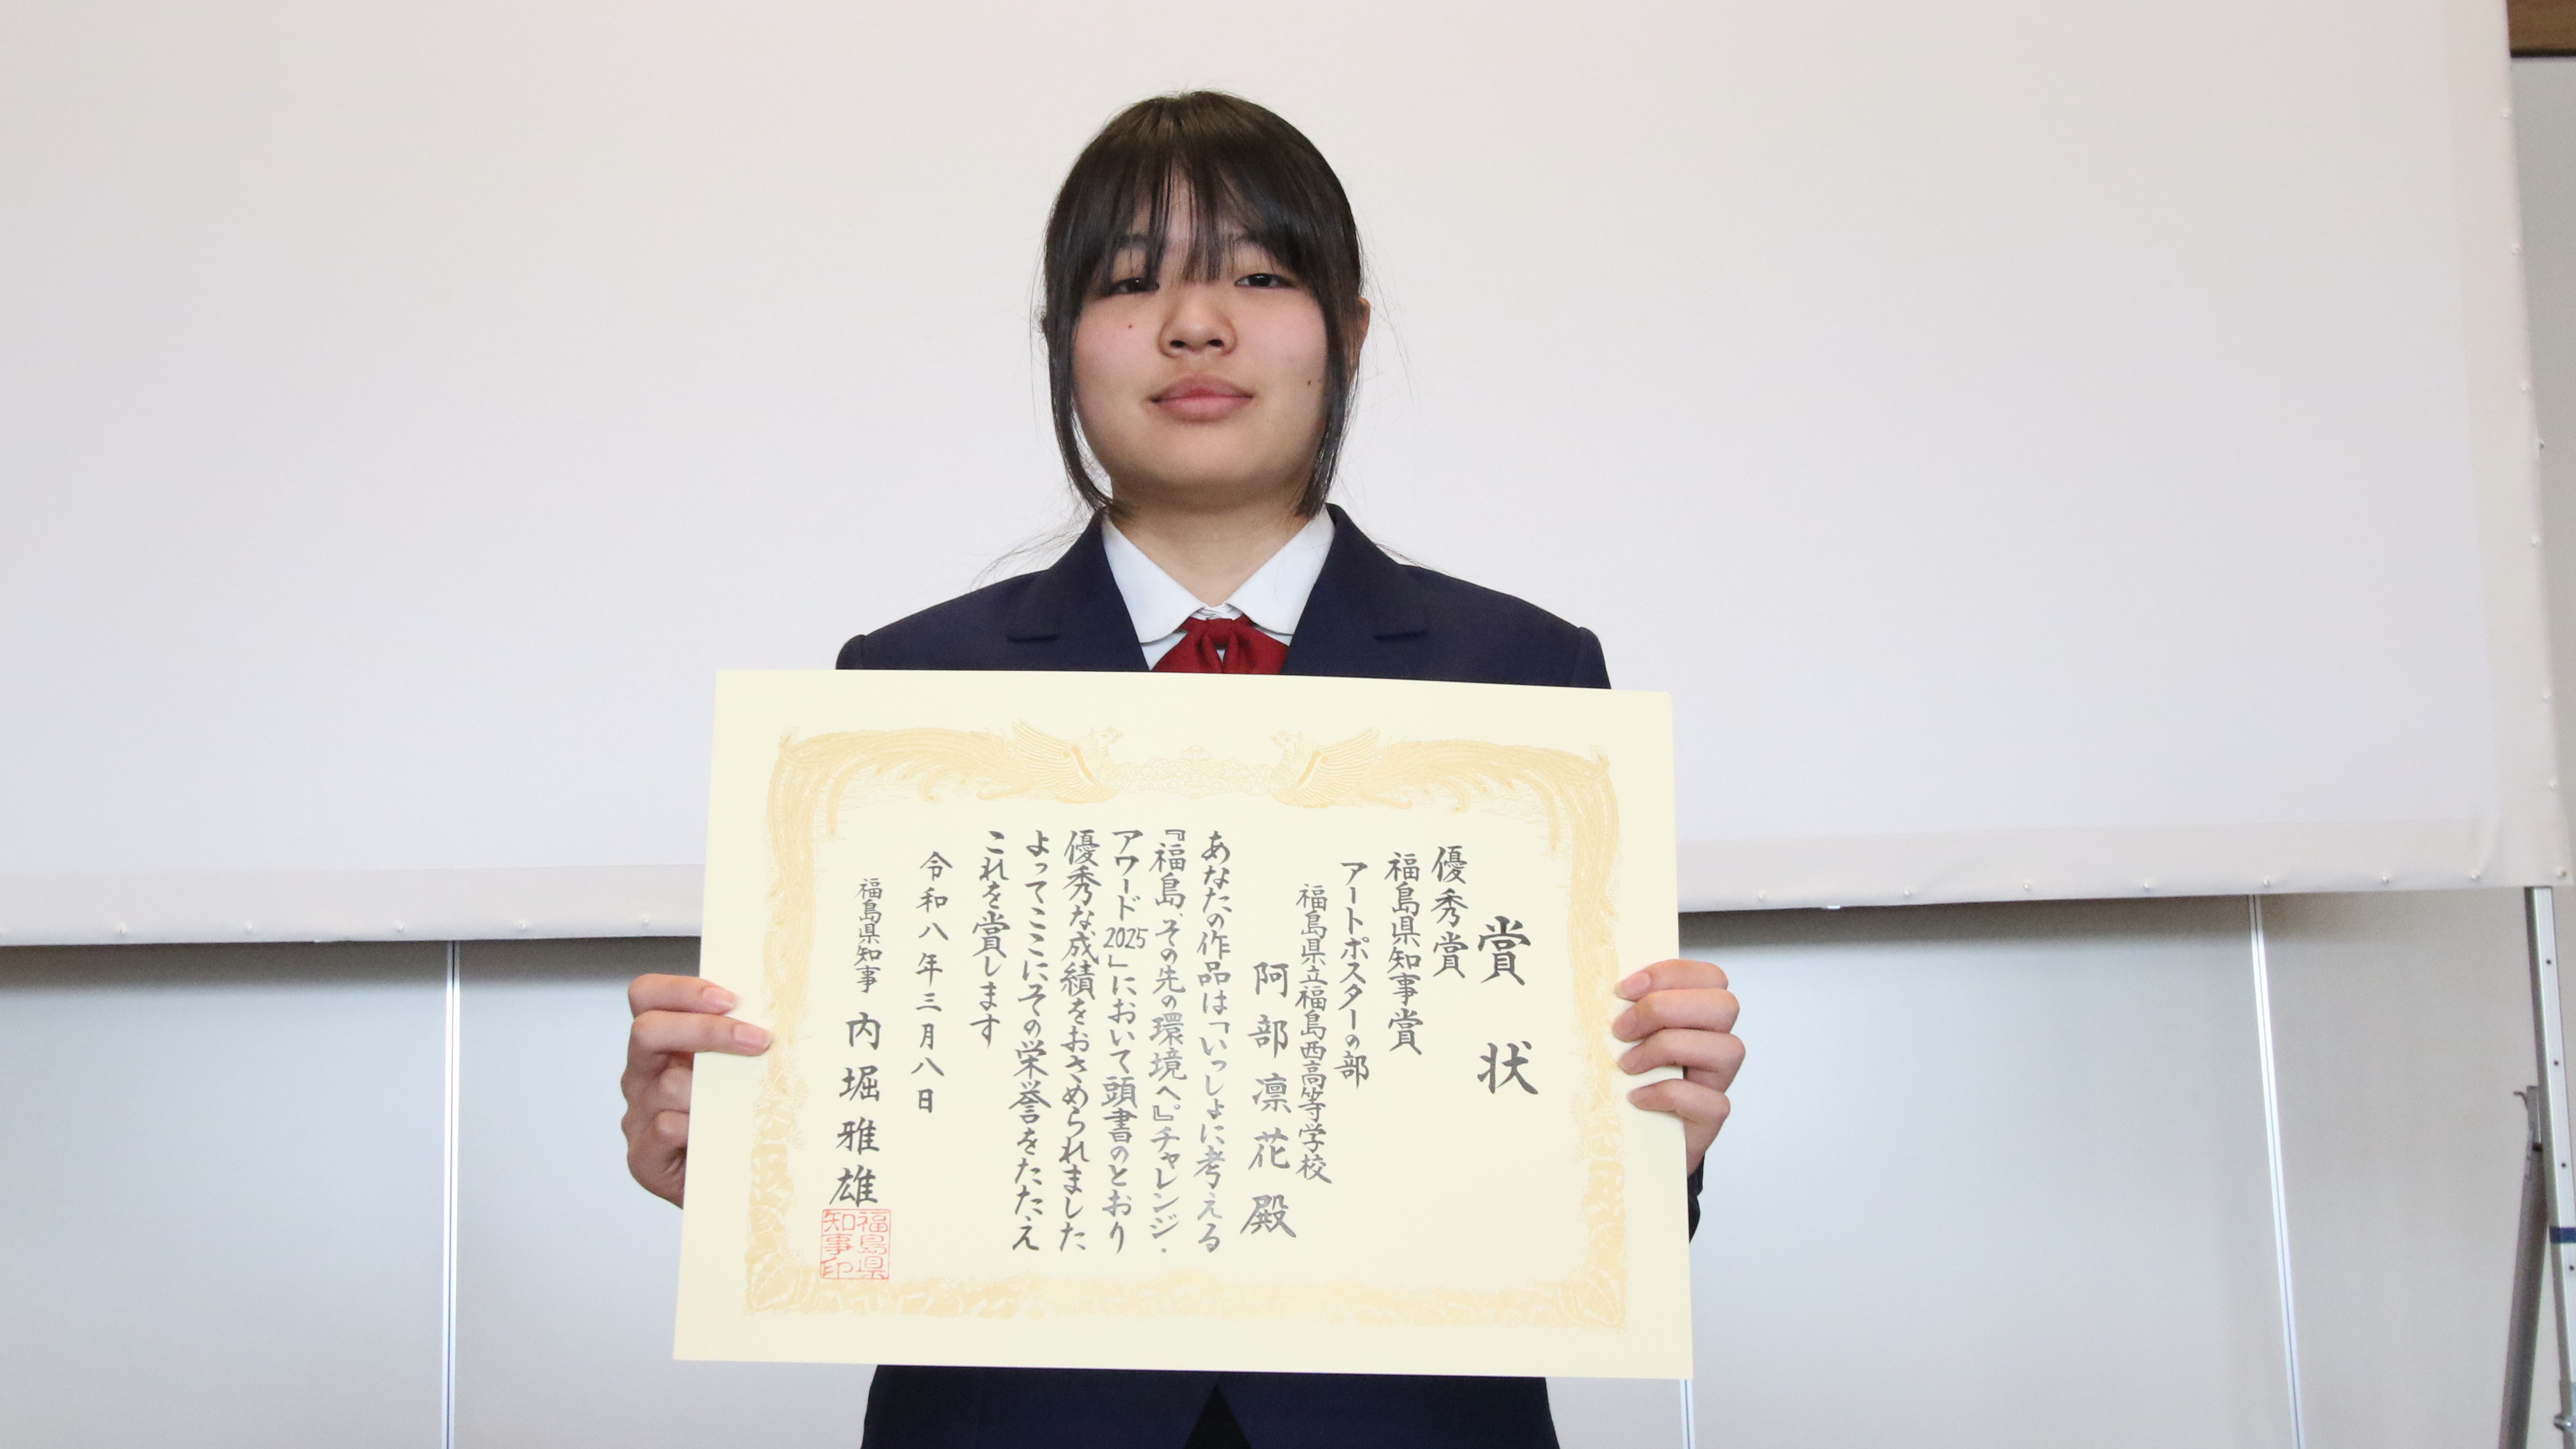 賞状
優秀賞
福島県知事賞
アートポスターの部
福島県立福島西高等学校
阿部凛花殿
あなたの作品は「いっしょに考える
『福島、その先の環境へ。』チャレンジ・
アワード2025」において頭書のとおり
優秀な成績をおさめられました
よってここにその栄誉をたたえ
これを賞します
令和八年三月八日
福島県知事 内堀雅雄
福島県
知事印